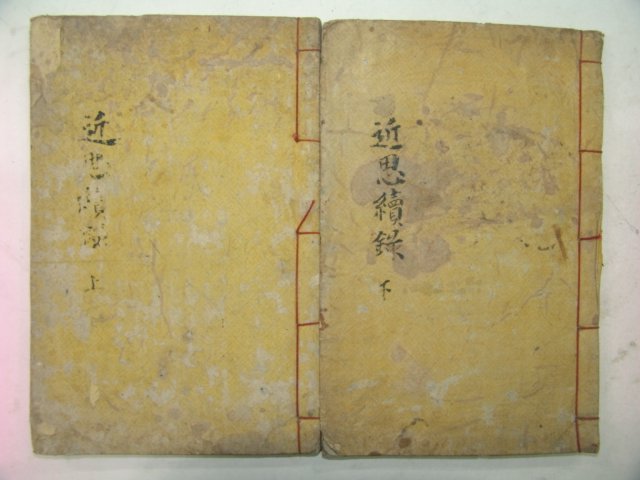 近思續錄
上
近思續錄
下